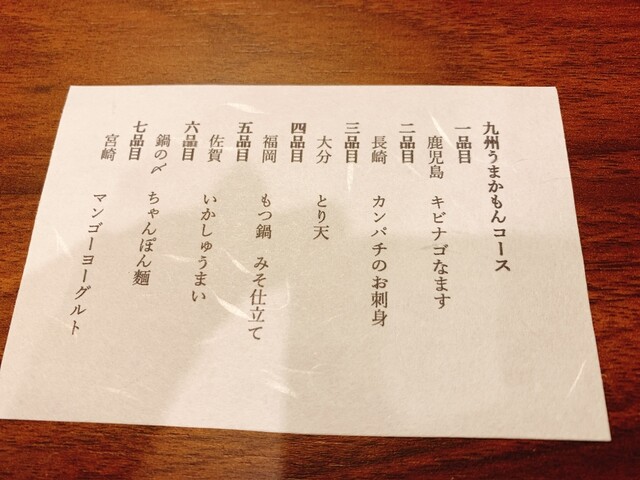 九州うまかもんコース
一品目
鹿児島 キビナゴなます
二品目
長崎 カンパチのお刺身
三品目
大分 とり天
四品目
福岡 もつ鍋 みそ仕立て
五品目
佐賀 いかしゅうまい
六品目
鍋の〆 ちゃんぽん麺
七品目
宮崎 マンゴーヨーグルト